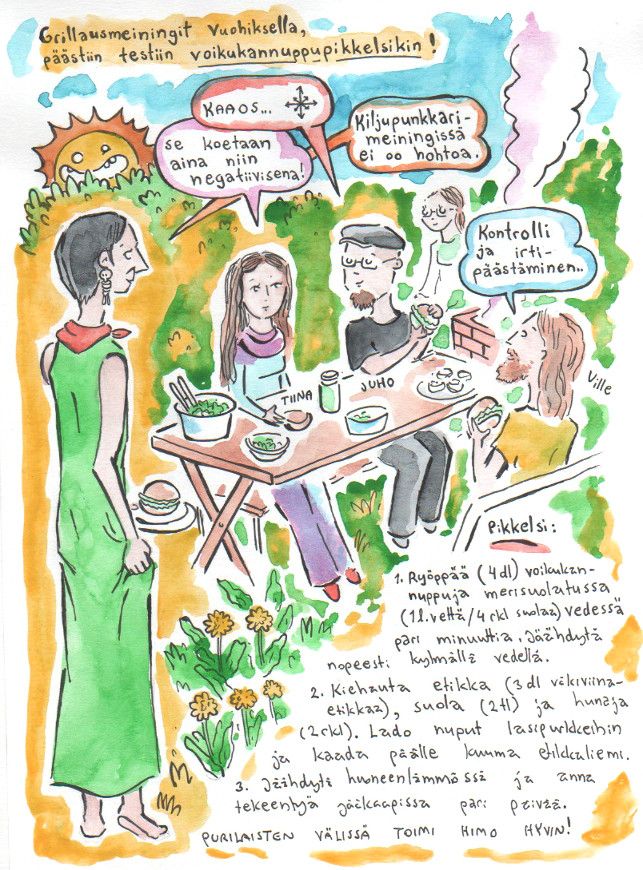 Grillausmeiningit vuohiksella,
päästiin testiin voikukannuppupikkelsikin!
KAAOS...
se koetaan
aina niin
negatiivisena!
Kiljupunkkari-
meiningissä
ei oo hohtoa.
Kontrolli
ja irti-
päästäminen..
TIINA
JUHO
Ville
Pikkelsi:
1. Ryöppää (4 dl) voikukan-
nuppuja merisuolatussa
(1 l. vettä/4 rkl suolaa) vedessä
pari minuuttia. Jäähdytä
nopeesti kylmällä vedellä.
2. Kiehauta etikka (3 dl väkiviina-
etikkaa), suola (2 tl) ja hunaja
(2 rkl). Lado nuput lasipurkkeihin
ja kaada päälle kuuma etikkaliemi.
3. Jäähdytä huoneenlämmössä ja anna
tekeentyä jääkaapissa pari päivää.
PURILAISTEN VÄLISSÄ TOIMI HIMO HYVIN!